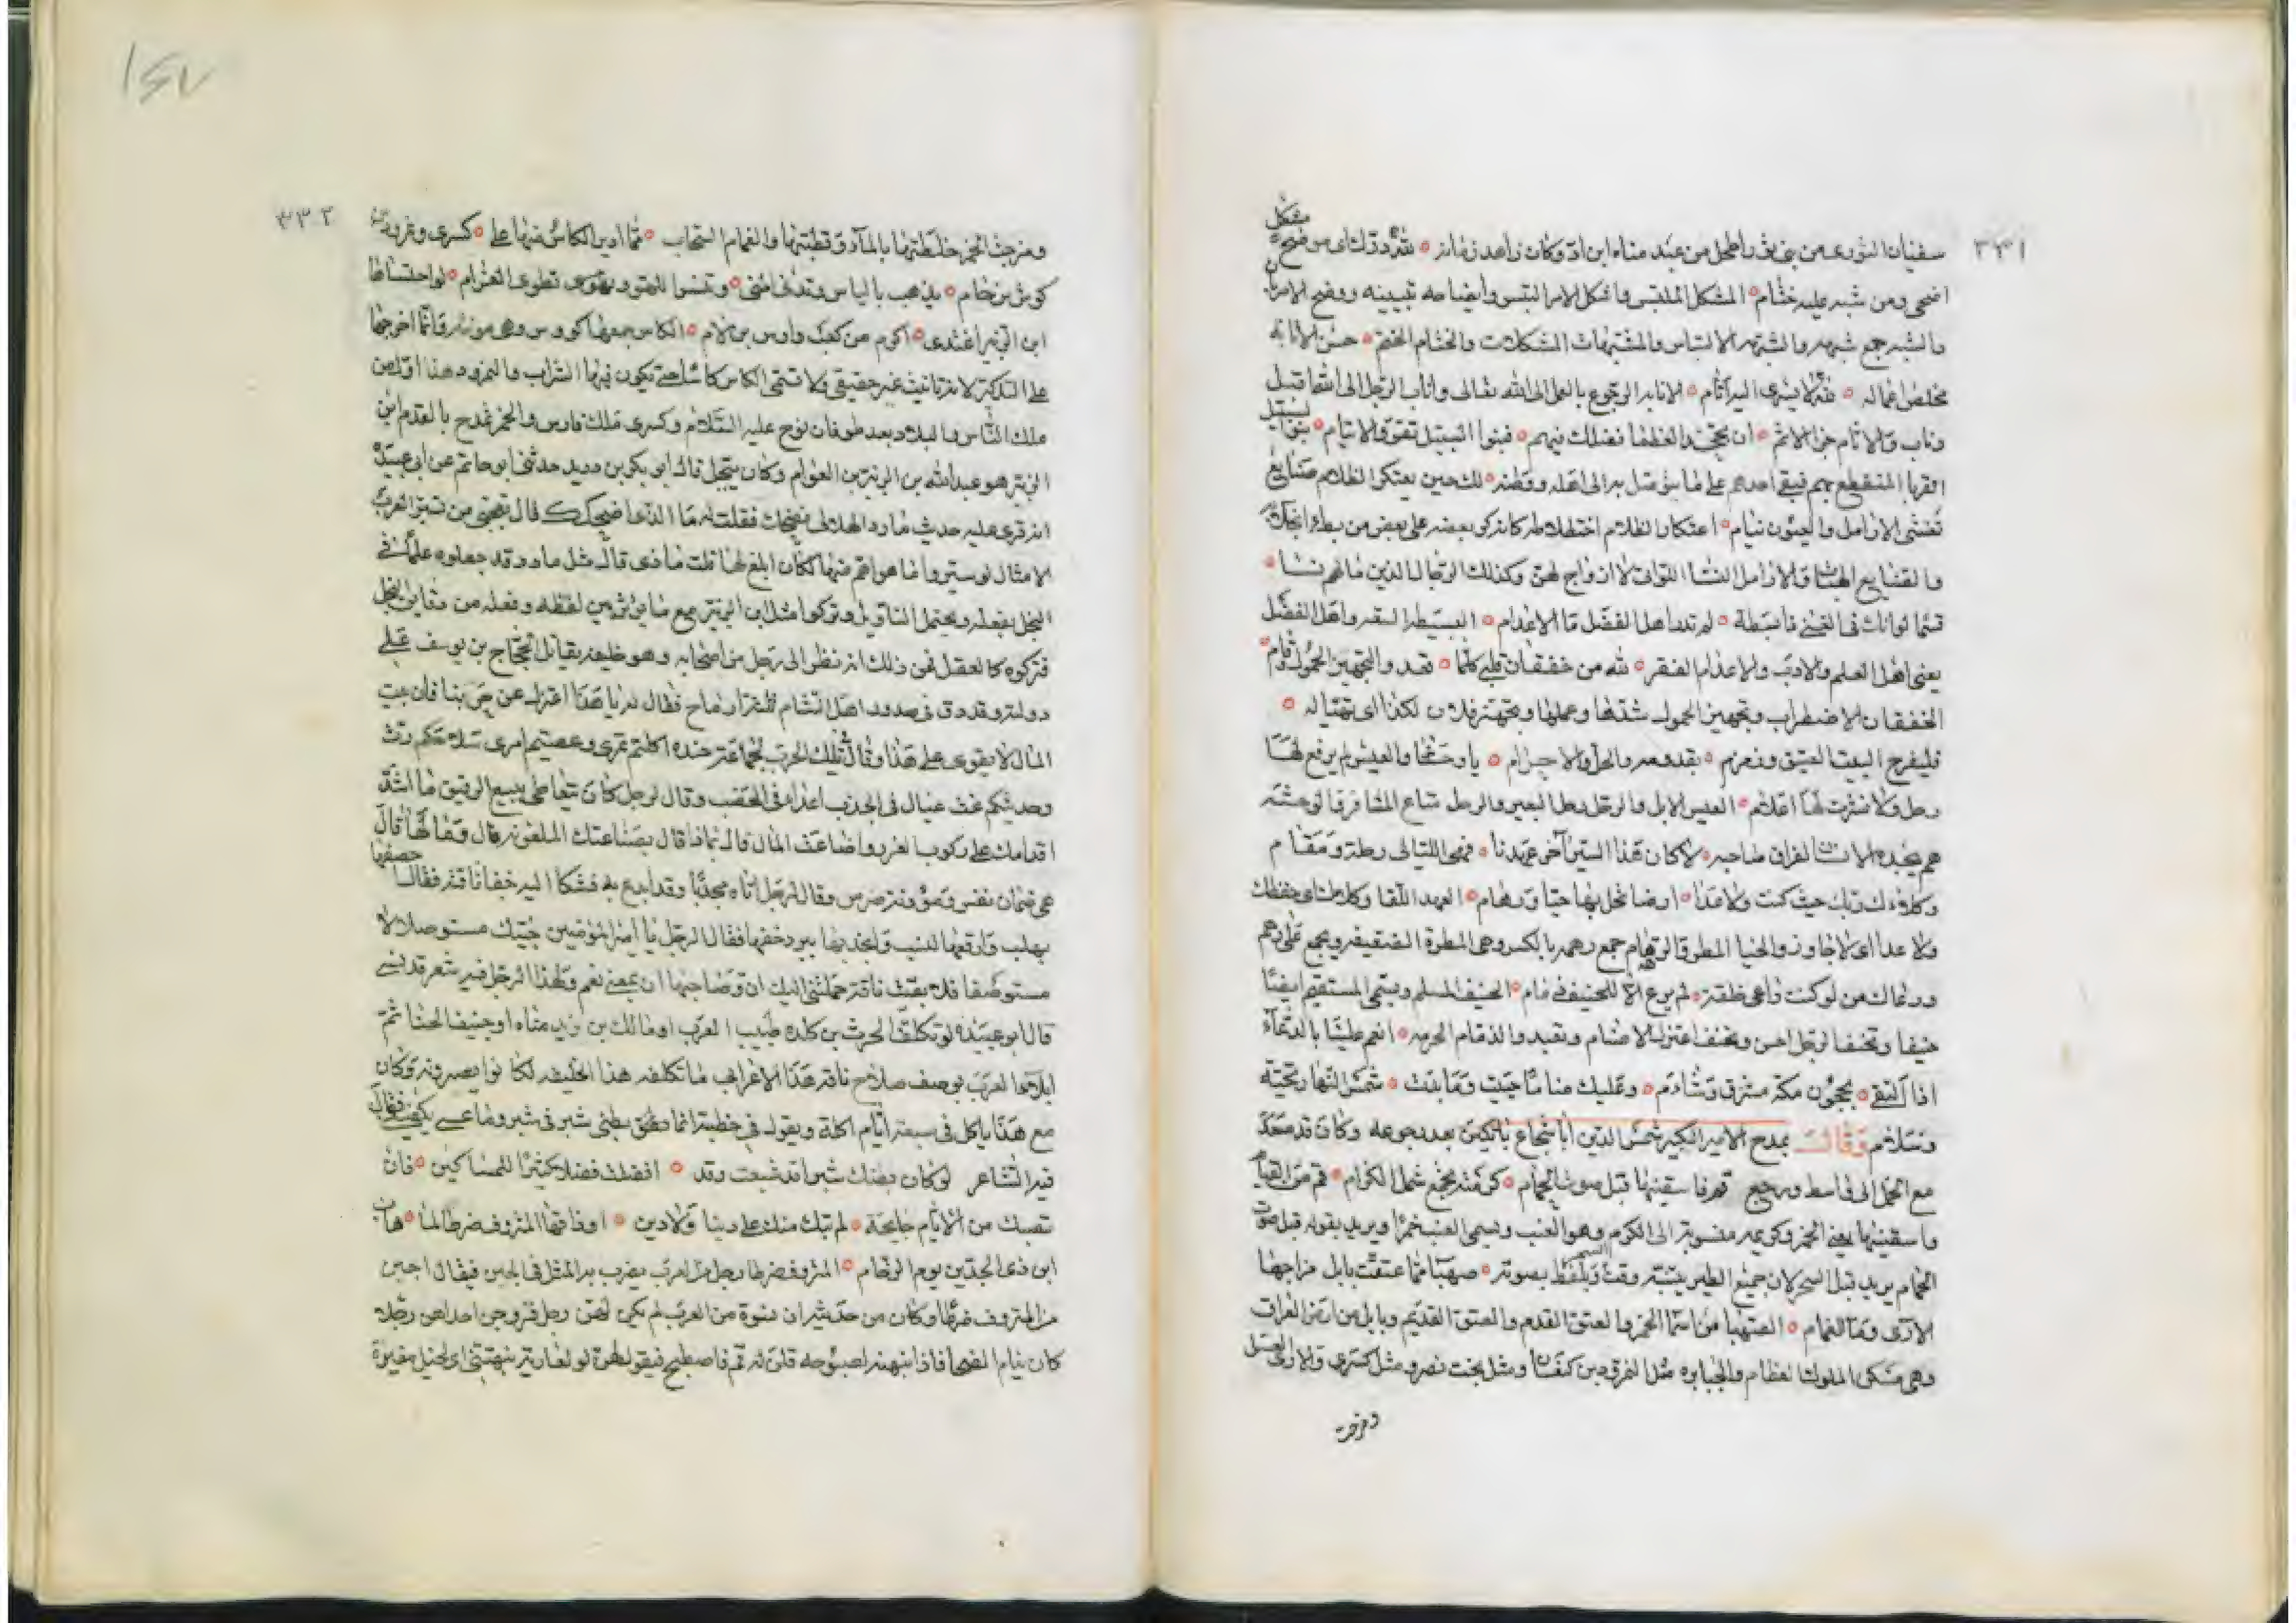 ٣٣١
مشكل
سفيان الثوري من بني ثور واطحل من عبد مناه ابن اد وكان زاهد زمانه ه لله درك اي موضح
اضحى ومن شبه عليه ختام ه المشكل الملتبس واشكل الامر التبس وايضاحه تبيينه ووضح الامر بان
والشبه جمع شبهه والشبهه الالتباس والمشتبهات المشكلات والختام الختم ه حسن الانابه
مخلص اعماله ه لله لا يسرى اليه آثام ه الانابه الرجوع بالعمل الى الله تعالى واناب الرجل الى الله اقبل
وتاب والاثام جزا الاثم ه ان يحجد العظما فضلك فيهم ه فبنوا السبيل تقر والايتام ه بنو السبيل
الغربا المنقطع بهم فيبقى احدهم على ما يتوصل به الى اهله ووطنه ه لك حين يعتكر الظلام صنايع
تغشى الارامل والعيون نيام ه اعتكار الظلام اختلاطه كانه كر بعضه على بعض من بطء انجلائه
والصنايع الهبات والارامل النسا اللواتي لا ازواج لهن وكذلك الرجال الذين ما لهم نسا ه
قسما لو انك في الغنى ذا بسطة ه لم تدر اهل الفضل ما الاعدام ه البسيطه السعه واهل الفضل
يعني اهل العلم والادب والاعدام الفقر ه لله من خفقان قلبي كلما ه نفد والتجهيز الحمول وقام
الخفقان الاضطراب وتجهيز الحمول شدها وحملها وتجهز فلان لكذا اى تهيا له ه
فليفرح البيت العتيق وزمزم ه بقدومه والحل والاحرام ه يا وحشتا والعيس لم يرفع لها
رحل ولا نشرت لها اعلام ه العيس الابل والرحل رحل البعير والرحل متاع المسافر والوحشه
هم يجده الانسان لفراق صاحبه ه لا كان هذا السير آخر عهدنا ه فهي الليالي رحلة ومقام
وكلاءك ربك حيث كنت ولا عدا ه ارضا تحل بها حيا ورهام ه العهد اللقا وكلاءك اى حفظك
ولا عدا اى لا جاوز والحيا المطر والرهام جمع رهمه بالكسر وهي المطرة الضعيفه ويجمع على رهم
ورعاك من لو كنت راعي خلقه ه لم يرع الا للحنيف ذمام ه الحنيف المسلم ويسمى المستقيم ايضا
حنيفا وتحنف الرجل احسن وتحنف اعتزل الاصنام وتعبد والذمام الحرمه ه انعم علينا بالدعآء
اذا التقى ه بحجون مكة مشرق وشآم ه وعليك منا ما حييت وما بدت ه شمس النهار تحية
وسلام وقال يمدح الامير الكبير شمس الدين ابا شجاع باتكين بعد رجوعه وكان قد صعد
مع الحمل الى واسط ورجع قم فاسقنيها قبل صوت الحمام ه كرميّة تجمع شمل الكرام ه قم من القيام
واسقنيها يعني الخمر وكرميه منسوبة الى الكرم وهو العنب ويسمى العنب خمرا ويريد بقوله قبل صوت
الحمام يريد قبل السحر لان جميع الطير ينتبه وقت السحر ويلفظ بصوته ه صهبا مما عتقت بابل مزاجها
الارى وما الغمام ه الصهبا من اسما الخمر والعتق القدم والعتق القديم وبابل من ارض العراق
وهي مسكن الملوك العظام والجبابره مثل النمرود بن كنعان ومثل بخت نصر ومثل كسرى والارى العسل
ومزجت
١٤٧
٣٣٢
ومزجت الخمر خلطتها بالمآء وقطبتها والغمام السحاب ه مما ادير الكاس منها على ه كسرى ونمروذ
كوش بن حام ه يذهب بالياس وتدنى المنى ه وتنسوا الهم وتطوى الغرام ه لو احتساها
ابن الزبير اغتدى ه اكرم من كعب واوس بن لام ه الكاس جمعها كووس وهي مونثه وانما اخرجها
على التذكير لانه تانيث غير حقيقي ولا تسمى الكاس كاسا حتى يكون فيها الشراب والنمرود هذا اول من
ملك الناس والبلاد بعد طوفان نوح عليه السلام وكسرى ملك فارس والخمر تمدح بالقدم ابن
الزبير هو عبد الله بن الزبير بن العوام وكان يبخل قال ابو بكر بن دريد حدثني ابو حاتم عن ابي عبيدة
انه قرى عليه حديث مادر الهلالي فضحك فقلت له ما الذى اضحكك فقال تعجبي من تسيير العرب
الامثال لو سيروا ما هو اهم منها لكان ابلغ لها قلت ما ذى قال مثل مادر وقد جعلوه علما في
البخل بفعله ويحتمل التاويل وتركوا مثل ابن الزبير مع ما يؤثر من لفظه وفعله من دقايق البخل
فتركوه كالعقل فمن ذلك انه نظر الى رجل من اصحابه وهو خليفه يقاتل الحجاج بن يوسف على
دولته وقد دق في صدور اهل الشام ثلثة ارماح فقال له يا هذا اعتزل عن حربنا فان بيت
المال لا يقوى على هذا وقال في تلك الحرب لجماعة جنده اكلتم تمرى وعصيتم امرى سلاحكم رث
وحديثكم غث عيال في الجدب اعداء في الخصب وقال لرجل كان يتعاطى بيع الرقيق ما اشد
اقدامك على ركوب الغرر واضاعة المال قال بماذا قال بصناعتك الملعونه قال وما لها قال
هي ضمان نفس ومؤونة ضرس وقال لرجل اتاه مجتديا وقد ابدع به فشكا اليه حفا ناقته فقال اخصفها
بهلب وارقعها بسبت وانجد بها يبرد خفها فقال الرجل يا امير المؤمنين جيتك مستوصلا لا
مستوصفا فلا بقيت ناقة حملتني اليك ان وصاحبها ان بمعنى نعم ولهذا الرجل فيه شعر قد نسى
قال ابو عبيدة لو تكلف الحرث بن كلده طبيب العرب او مالك بن زيد مناه او حنيف الحناتم
ابلآء العرب بوصف صلاح ناقة هذا الاعرابي ما تكلفه هذا الخليفه لكانوا يعجزونه وكان
مع هذا ياكل في سبعة ايام اكلة ويقول في خطبته انما بطني شبر في شبر وما عسى يكفيني فقال
فيه الشاعر لو كان بطنك شبرا قد شبعت وقد ه افضلت فضلا كثيرا للمساكين ه فان
تصبك من الايام جايحة ه لم تبك منك على دنيا ولا دين ه او ذاقها المنزوف ضرطا لما ه هاب
ابن ذى الجدين يوم الزحام ه المنزوف ضرطا رجل من العرب يضرب به المثل في الجبن فيقال اجبن
من المنزوف ضرطا وكان من حديثه ان نسوة من العرب لم يكن لهن رجل فزوجن احداهن رجلا
كان ينام الضحى فاذا نبهنه لصبوحه قلن له قم فاصطبح فيقول لهن لو لغارية نبهتنني اى لخيل مغيرة